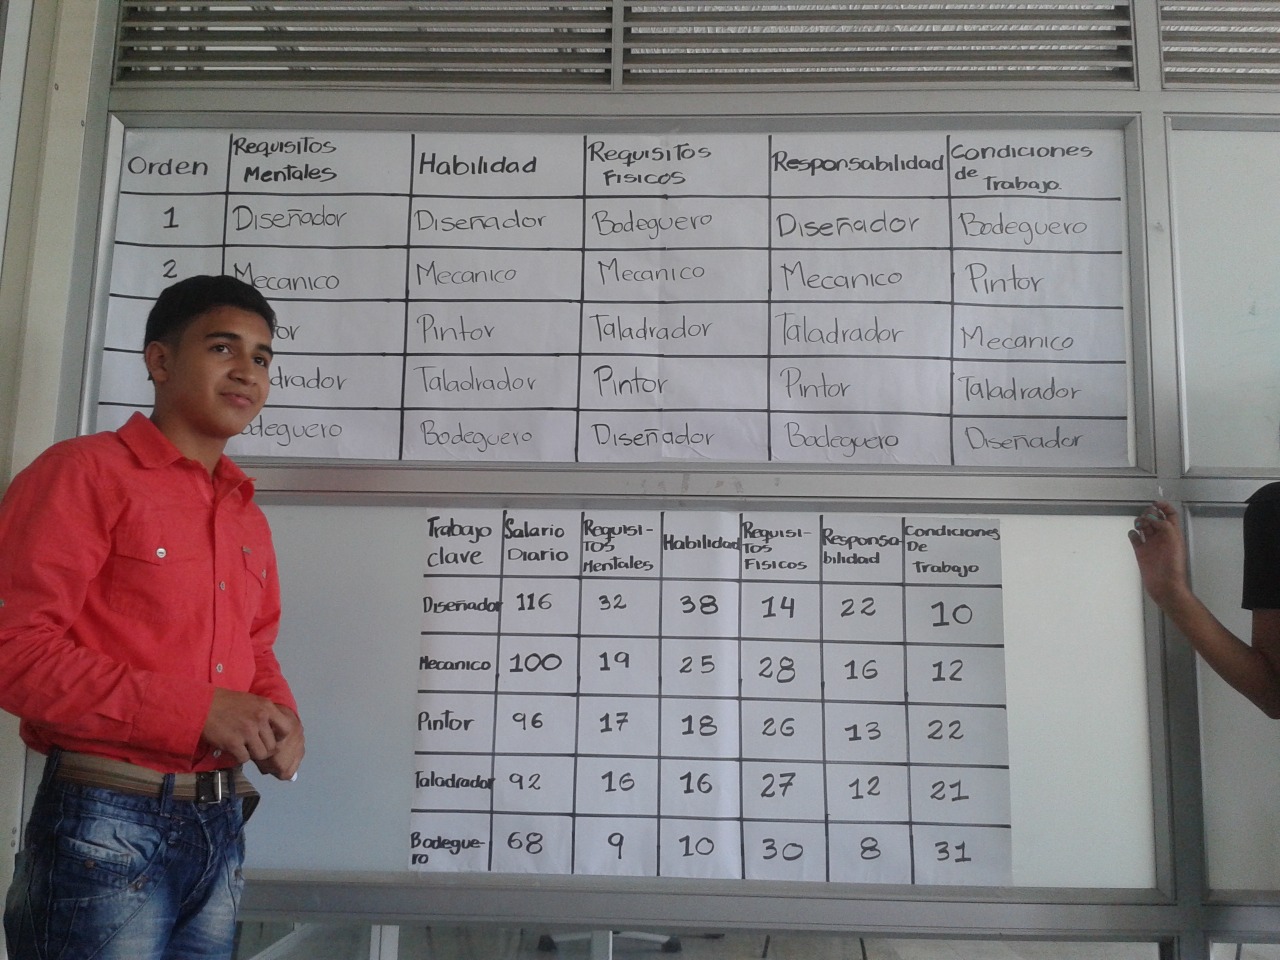 Orden Requisitos Mentales Habilidad Requisitos Fisicos Responsabilidad Condiciones de Trabajo.
1 Diseñador Diseñador Bodeguero Diseñador Bodeguero
2 Mecanico Mecanico Mecanico Mecanico Pintor
Pintor Taladrador Taladrador Mecanico
Taladrador Pintor Pintor Taladrador
Bodeguero Diseñador Bodeguero Diseñador
Trabajo clave Salario Diario Requisi-tos Mentales Habilidad Requisi-tos Fisicos Responsa-bilidad Condiciones De Trabajo
Diseñador 116 32 38 14 22 10
Mecanico 100 19 25 28 16 12
Pintor 96 17 18 26 13 22
Taladrador 92 16 16 27 12 21
Bodegue-ro 68 9 10 30 8 31